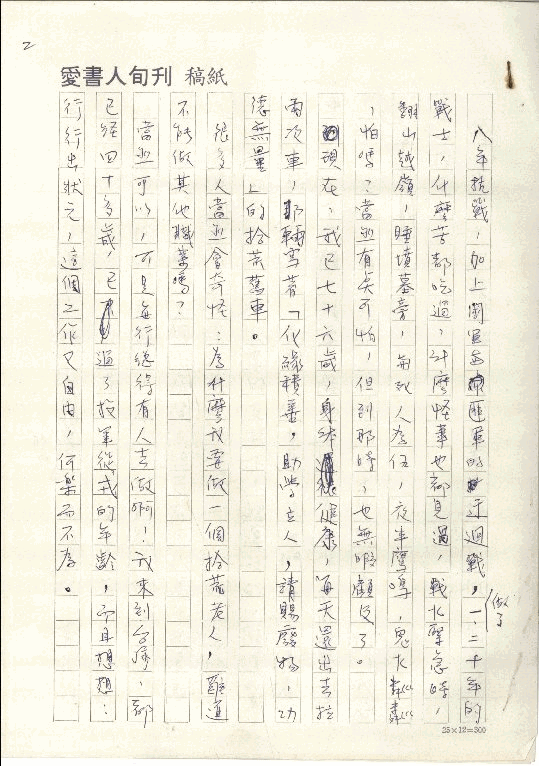 2
愛書人旬刊 稿紙
八年抗戰,加上閻匪的迂迴戰,做了一、二十年的
戰士,什麼苦都吃過,什麼怪事也都見過,戰火緊急時,
翻山越嶺,睡墳墓旁,與死人為伍,夜半鷹嘷,鬼火粼粼
,怕嗎?當然有点可怕,但到那時,也無暇顧及了。
現在,我已七十六歲,身体還很健康,每天還出去拉
兩次車,那輛寫著「化緣積善,助學立人,請賜廢物,功
德無量」的拾荒舊車。
很多人當然會奇怪:為什麼我要做一個拾荒老人,難道
不能做其他職業嗎?
當然可以,可是每行總得有人去做啊!我來到台灣,都
已經四十多歲,已過了投軍從戎的年齡,而且想想:
行行出狀元,這個工作又自由,何樂而不為。
25×12=300